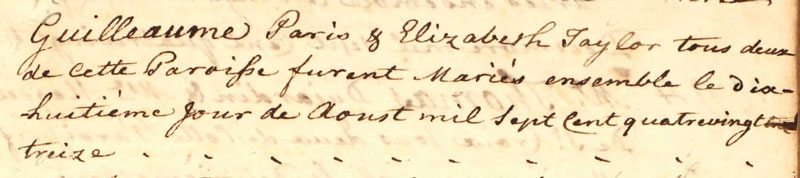 Guilleaume Paris & Elizabeth Taylor tous deux
de Cette Paroisse furent Mariés ensemble le dix-
huitiéme Jour de Aoust mil Sept Cent quatrevingt
treize